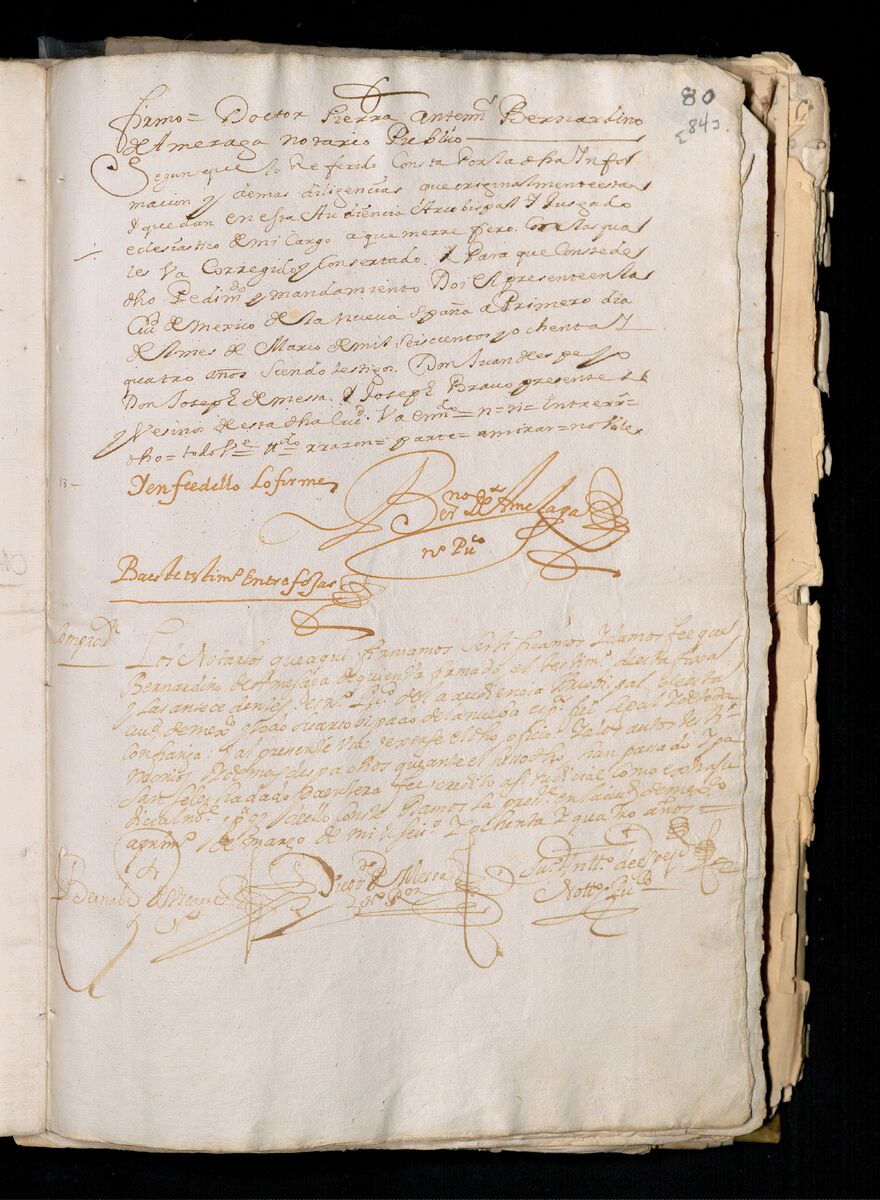 80
[84]
firmo = Doctor Sierra antemi Bernardino
de Amezaga notario Publico
Segun que lo Referido Consta Por la dha Infor
macion y demas diligencias que originalmente estan
y quedan en esta Audiencia Arzobispal y Jusgado
eclesiastico de mi Cargo a que me rrefiero. Con las qua
les Va Corregido y Consertado. Y Para que Conste de
dho Pedimto y mandamiento Doi el presente en la
Ciud de Mexico de la nueva España a Primero dia
del mes de Março de mil seiscientos y ochenta y
quatro años siendo testigos. Don Juan de espejo
Don Joseph de mesa. Y Joseph Bravo presentes
y Vesinos de esta dha Ciud. Va enmdo = n = ri = Entrerrs =
dho = todo Ve ttdo rrazon = parte = amirar = no Vale
13 -
Y en fee dello lo firme
Berno de Amezaga
no Puco
Va este testimo En tres fojas
Los Notarios que aqui firmamos Sertificamos Y damos fee que
Bernardino de Amesaga de quien Va firmado el testimo de esta foxa
y las antecedentes es no Puco de la audiencia Arzobispal de esta
ciud de mexo y todo su arzobispado de la nueba espa fiel legal y de toda
confiança. Y al presente usa y exerse el dho oficio. Y a los autos testi
monios y demas despachos que ante el susodho han pasado y pa
san se les ha dado y da entera fee y credito asi Judicial como extraju
dicialmte y pa que dello conste damos la preste en la ciud de mexico
a primo de março de mil seiso y ochenta y quatro años =
Bernabe
No
Notto Puco